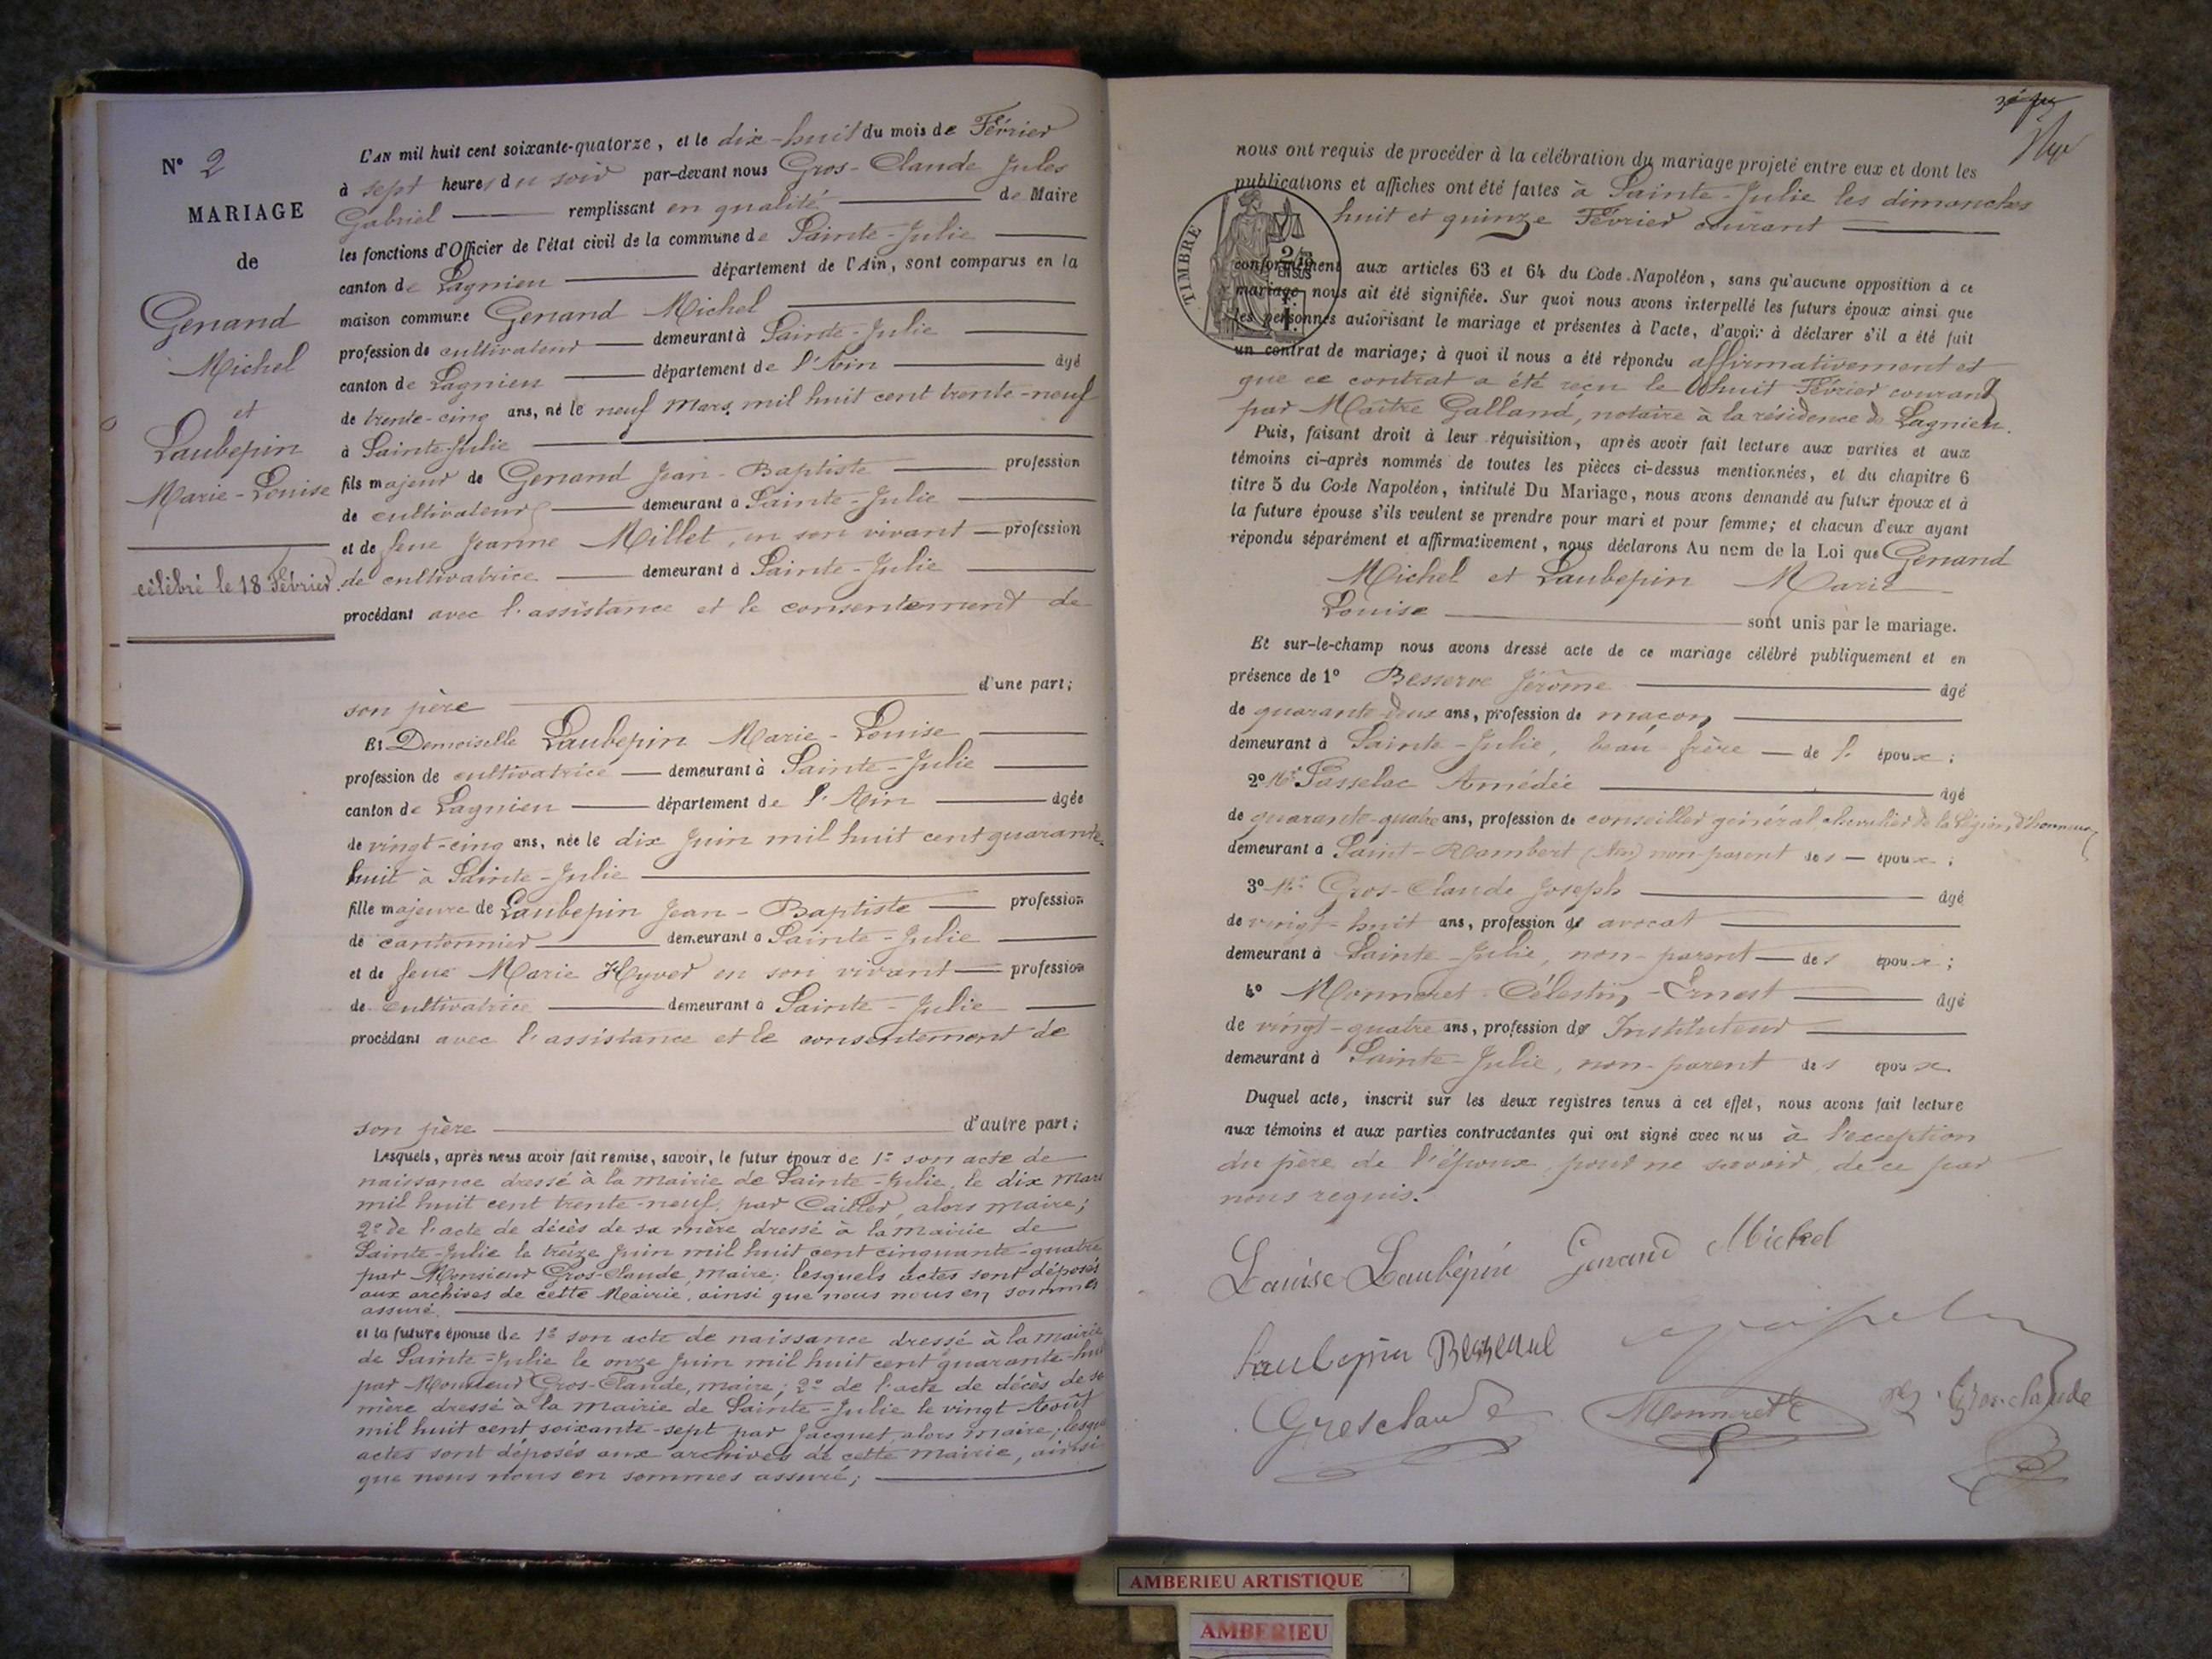 N° 2
MARIAGE
de
Genand
Michel
et
Laubepin
Marie-Louise
célébré le 18 Février.
L'AN mil huit cent soixante-quatorze, et le dix-huit du mois de Février
à sept heures du soir par-devant nous Gros-Claude Jules
Gabriel remplissant en qualité de Maire
les fonctions d'Officier de l'état civil de la commune de Sainte-Julie
canton de Lagnieu département de l'Ain, sont comparus en la
maison commune Genand Michel
profession de cultivateur demeurant à Sainte-Julie
canton de Lagnieu département de l'Ain âgé
de trente-cinq ans, né le neuf Mars mil huit cent trente-neuf
à Sainte-Julie
fils majeur de Genand Jean-Baptiste profession
de cultivateur demeurant à Sainte-Julie
et de feue Jeanne Millet, en son vivant profession
de cultivatrice demeurant à Sainte-Julie
procédant avec l'assistance et le consentement de
son père d'une part;
Et Demoiselle Laubepin Marie-Louise
profession de cultivatrice demeurant à Sainte-Julie
canton de Lagnieu département de l'Ain âgée
de vingt-cinq ans, née le dix Juin mil huit cent quarante-
huit à Sainte-Julie
fille majeure de Laubepin Jean-Baptiste profession
de cantonnier demeurant à Sainte-Julie
et de feue Marie Hyver en son vivant profession
de cultivatrice demeurant à Sainte-Julie
procédant avec l'assistance et le consentement de
son père d'autre part;
Lesquels, après nous avoir fait remise, savoir, le futur époux de 1° son acte de
naissance dressé à la mairie de Sainte-Julie, le dix Mars
mil huit cent trente-neuf, par Cailler, alors maire;
2° de l'acte de décès de sa mère dressé à la mairie de
Sainte-Julie le treize Juin mil huit cent cinquante-quatre
par Monsieur Gros-Claude, maire; lesquels actes sont déposés
aux archives de cette Mairie, ainsi que nous nous en sommes
assuré.
et la future épouse de 1° son acte de naissance dressé à la mairie
de Sainte-Julie le onze Juin mil huit cent quarante-huit
par Monsieur Gros-Claude, maire; 2° de l'acte de décès de sa
mère dressé à la mairie de Sainte-Julie le vingt Août
mil huit cent soixante-sept par Jacquet, alors maire; lesquels
actes sont déposés aux archives de cette mairie, ainsi
que nous nous en sommes assuré;
nous ont requis de procéder à la célébration du mariage projeté entre eux et dont les
publications et affiches ont été faites à Sainte-Julie les dimanches
huit et quinze Février courant
TIMBRE
conformément aux articles 63 et 64 du Code Napoléon, sans qu'aucune opposition à ce
mariage nous ait été signifiée. Sur quoi nous avons interpellé les futurs époux ainsi que
les personnes autorisant le mariage et présentes à l'acte, d'avoir à déclarer s'il a été fait
un contrat de mariage; à quoi il nous a été répondu affirmativement et
que ce contrat a été reçu le huit Février courant
par Maître Galland, notaire à la résidence de Lagnieu.
Puis, faisant droit à leur réquisition, après avoir fait lecture aux parties et aux
témoins ci-après nommés de toutes les pièces ci-dessus mentionnées, et du chapitre 6
titre 5 du Code Napoléon, intitulé Du Mariage, nous avons demandé au futur époux et à
la future épouse s'ils veulent se prendre pour mari et pour femme; et chacun d'eux ayant
répondu séparément et affirmativement, nous déclarons Au nom de la Loi que Genand
Michel et Laubepin Marie-
Louise sont unis par le mariage.
Et sur-le-champ nous avons dressé acte de ce mariage célébré publiquement et en
présence de 1° Besserve Jérôme âgé
de quarante-deux ans, profession de maçon
demeurant à Sainte-Julie, beau-frère de l' époux;
2° Mr Passelac Amédée âgé
de quarante-quatre ans, profession de conseiller général, chevalier de la Légion d'honneur
demeurant à Saint-Rambert (Ain) non parent des époux;
3° Mr Gros-Claude Joseph âgé
de vingt-huit ans, profession d' avocat
demeurant à Sainte-Julie, non-parent des époux;
4° Monneret Célestin-Ernest âgé
de vingt-quatre ans, profession d' Instituteur
demeurant à Sainte-Julie, non-parent des époux
Duquel acte, inscrit sur les deux registres tenus à cet effet, nous avons fait lecture
aux témoins et aux parties contractantes qui ont signé avec nous à l'exception
du père de l'époux, pour ne savoir, de ce par
nous requis.
Louise Laubépin Genand Michel
Laubepin Besserve
Grosclaude Monneret C Grosclaude
AMBERIEU ARTISTIQUE
AMBERIEU